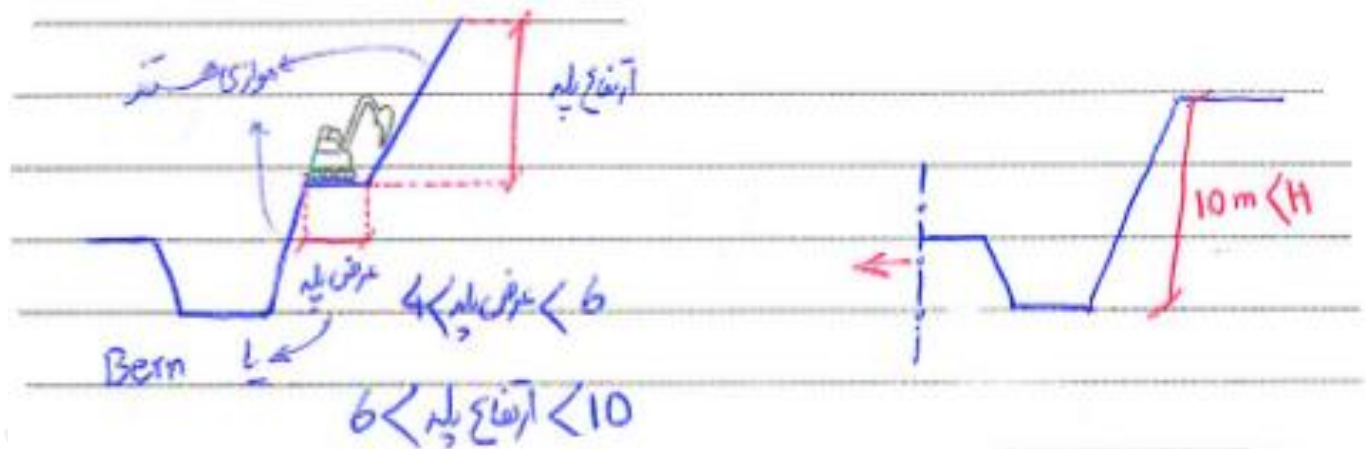 موازی هستند
ارتفاع پله
10m < H
عرض پله
4 < عرض پله < 6
Berm یا
6 < ارتفاع پله < 10